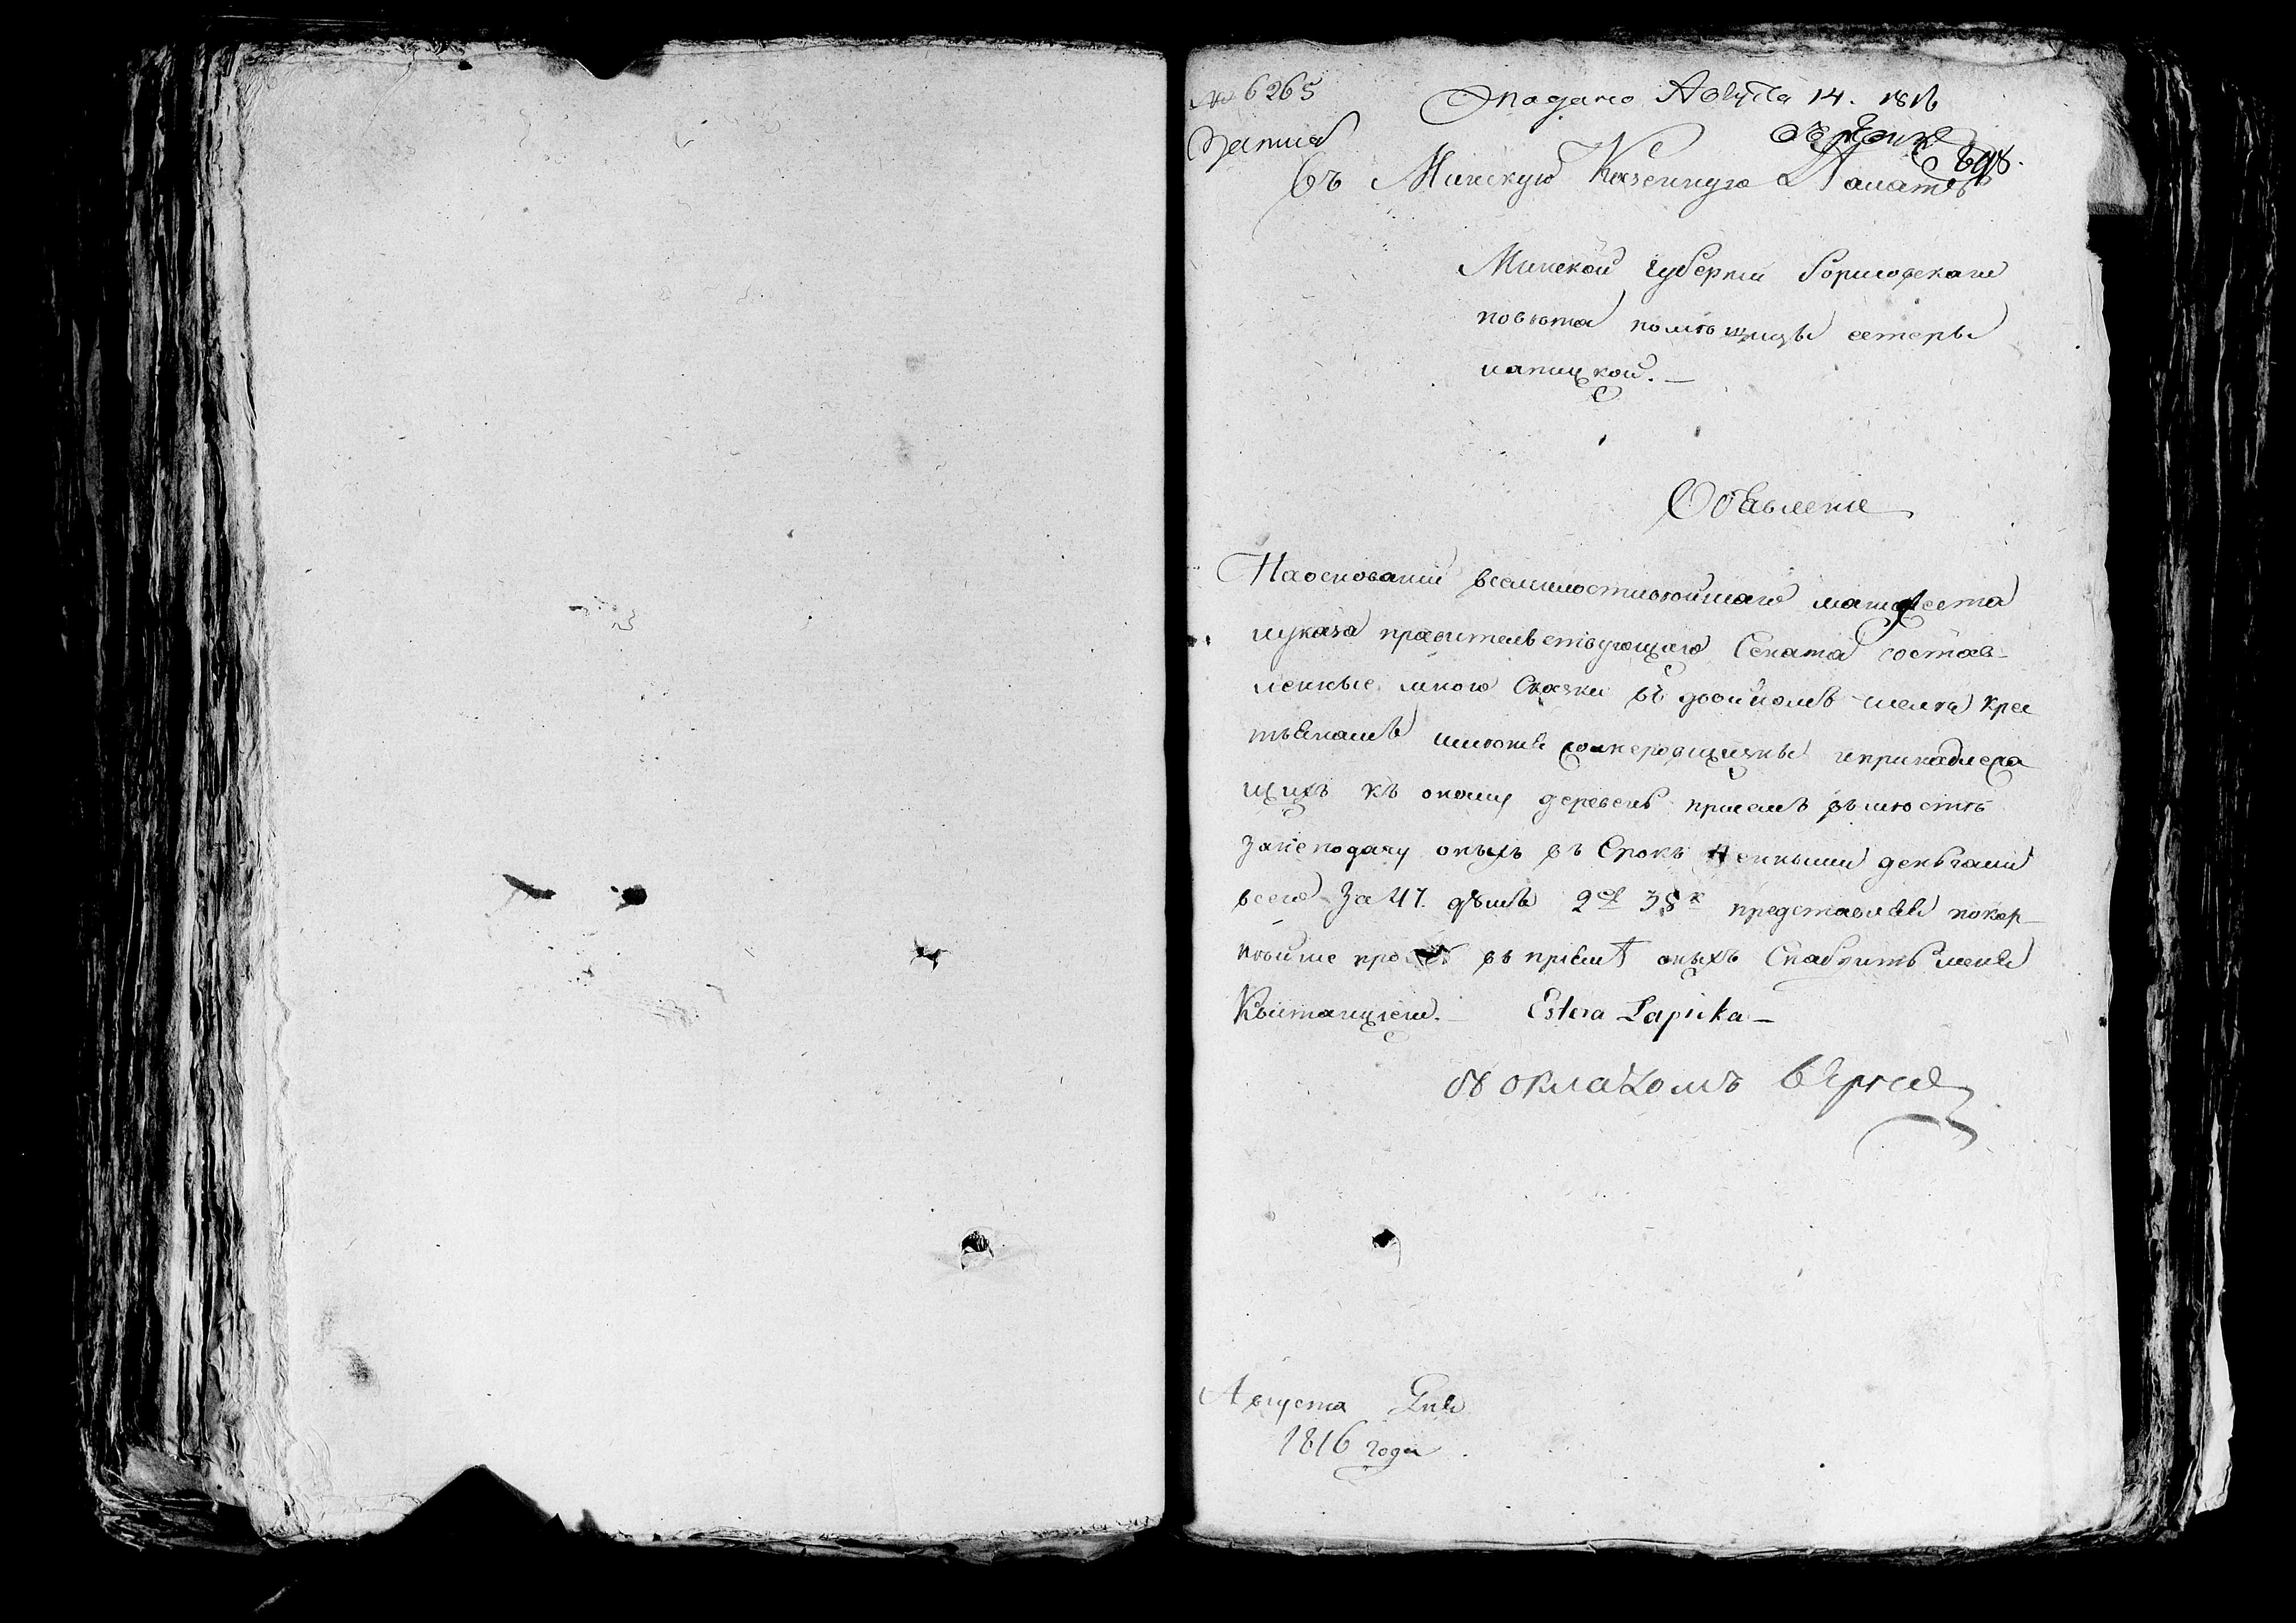 № 6265
Подано Августа 14. 1816
Запис
698.
Въ Минскую Казенную Палату
Минской губерніи борисовскаго
повѣта помѣщицы естеры
лапицкой. —
Объявленіе
На основаніи всемилостивѣйшаго манифеста
и указа правительствующаго Сената состав-
ленные мною Сказки въ двойномъ числѣ крес
тьянамъ имѣнія и принадлежа
щихъ къ оному деревень при семъ вмѣстѣ
за неподачу оныхъ въ Срокъ пенными деньгами
всего за 47. душъ 2 р 38 к представляя покор-
нѣйше прошу въ пріемѣ оныхъ Снабдить меня
Квитанціею. — Estera Lapicka —
съ окладомъ верно
Августа дня
1816 года